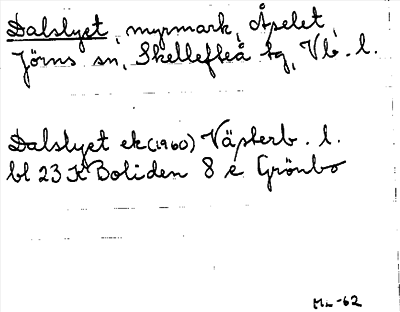 Dalslyet, myrmark, Åselet,
Jörns sn, Skellefteå tg, Vb. l.
Dalslyet ek (1960) Västerb. l.
bl 23 K Boliden 8 e Grönbo
-62